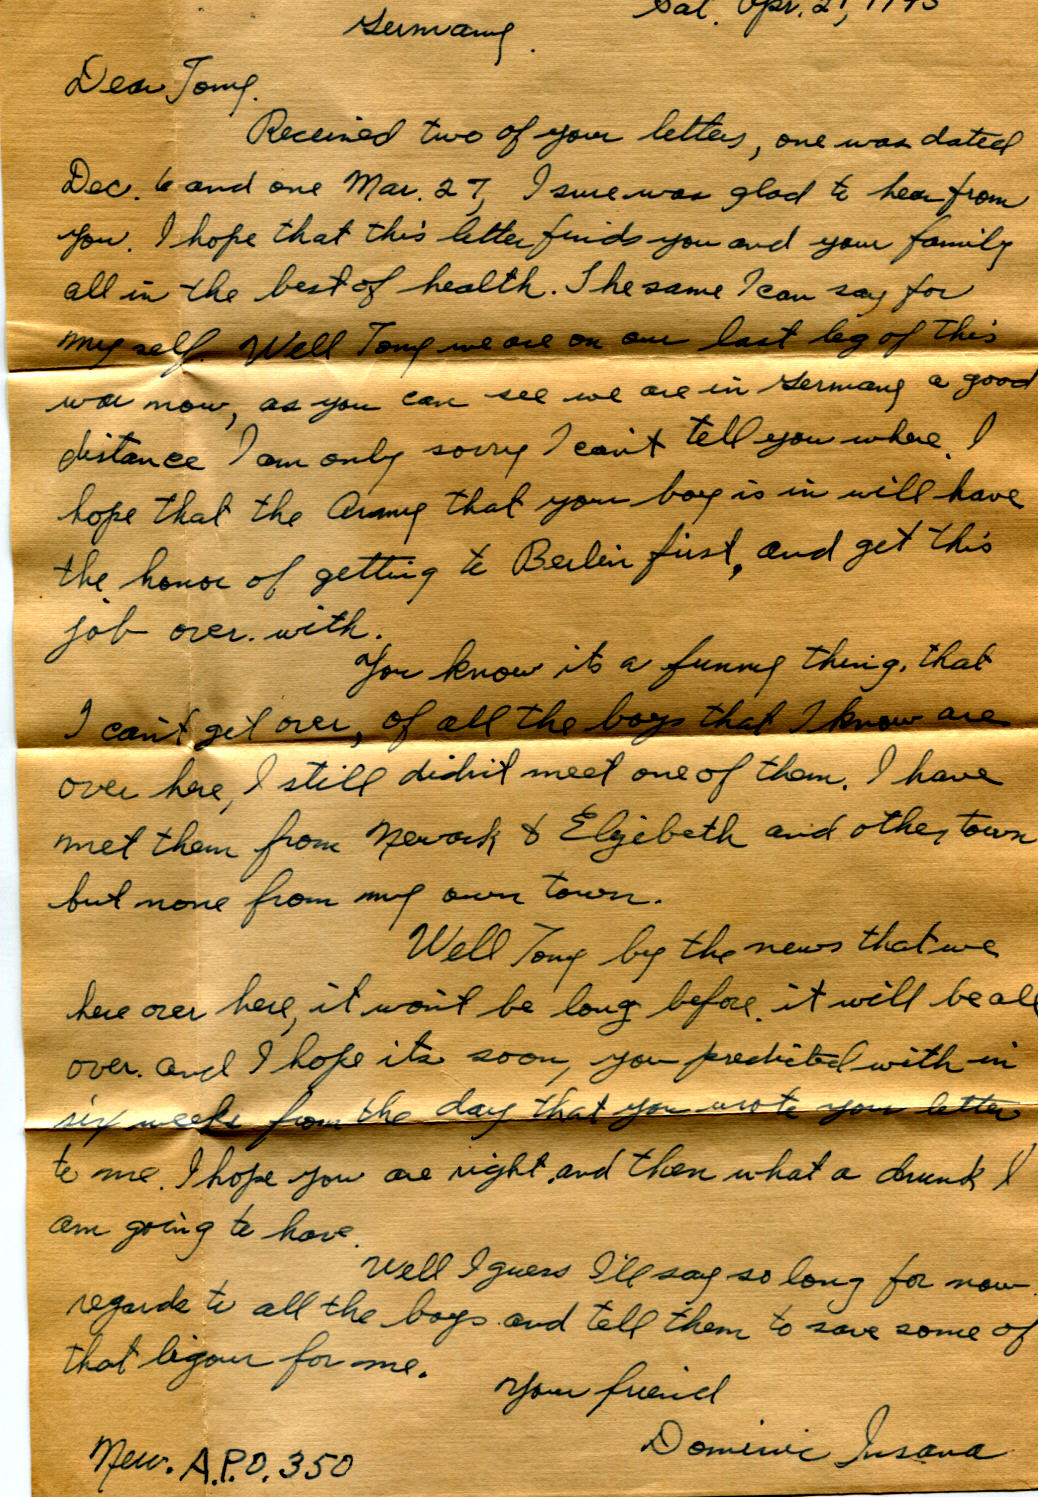 Sat. Apr. 21, 1945
Germany.
Dear Tony.
Received two of your letters, one was dated
Dec. 6 and one Mar. 27, I sure was glad to hear from
you. I hope that this letter finds you and your family
all in the best of health. The same I can say for
my self. Well Tony we are on our last leg of this
war now, as you can see we are in Germany a good
distance I am only sorry I can't tell you where. I
hope that the Army that your boy is in will have
the honor of getting to Berlin first, and get this
job over. with.
You know its a funny thing. that
I can't get over, of all the boys that I know are
over here, I still didn't meet one of them. I have
met them from Newark & Elizebeth and other town
but none from my own town.
Well Tony by the news that we
here over here, it won't be long before. it will be all
over. and I hope its soon, you predicted with-in
six weeks from the day that you wrote your letter
to me. I hope you are right. and then what a drunk I
am going to have.
Well I guess I'll say so long for now.
regards to all the boys and tell them to save some of
that liqour for me.
Your friend
Dominic Insana
New. A.P.O. 350